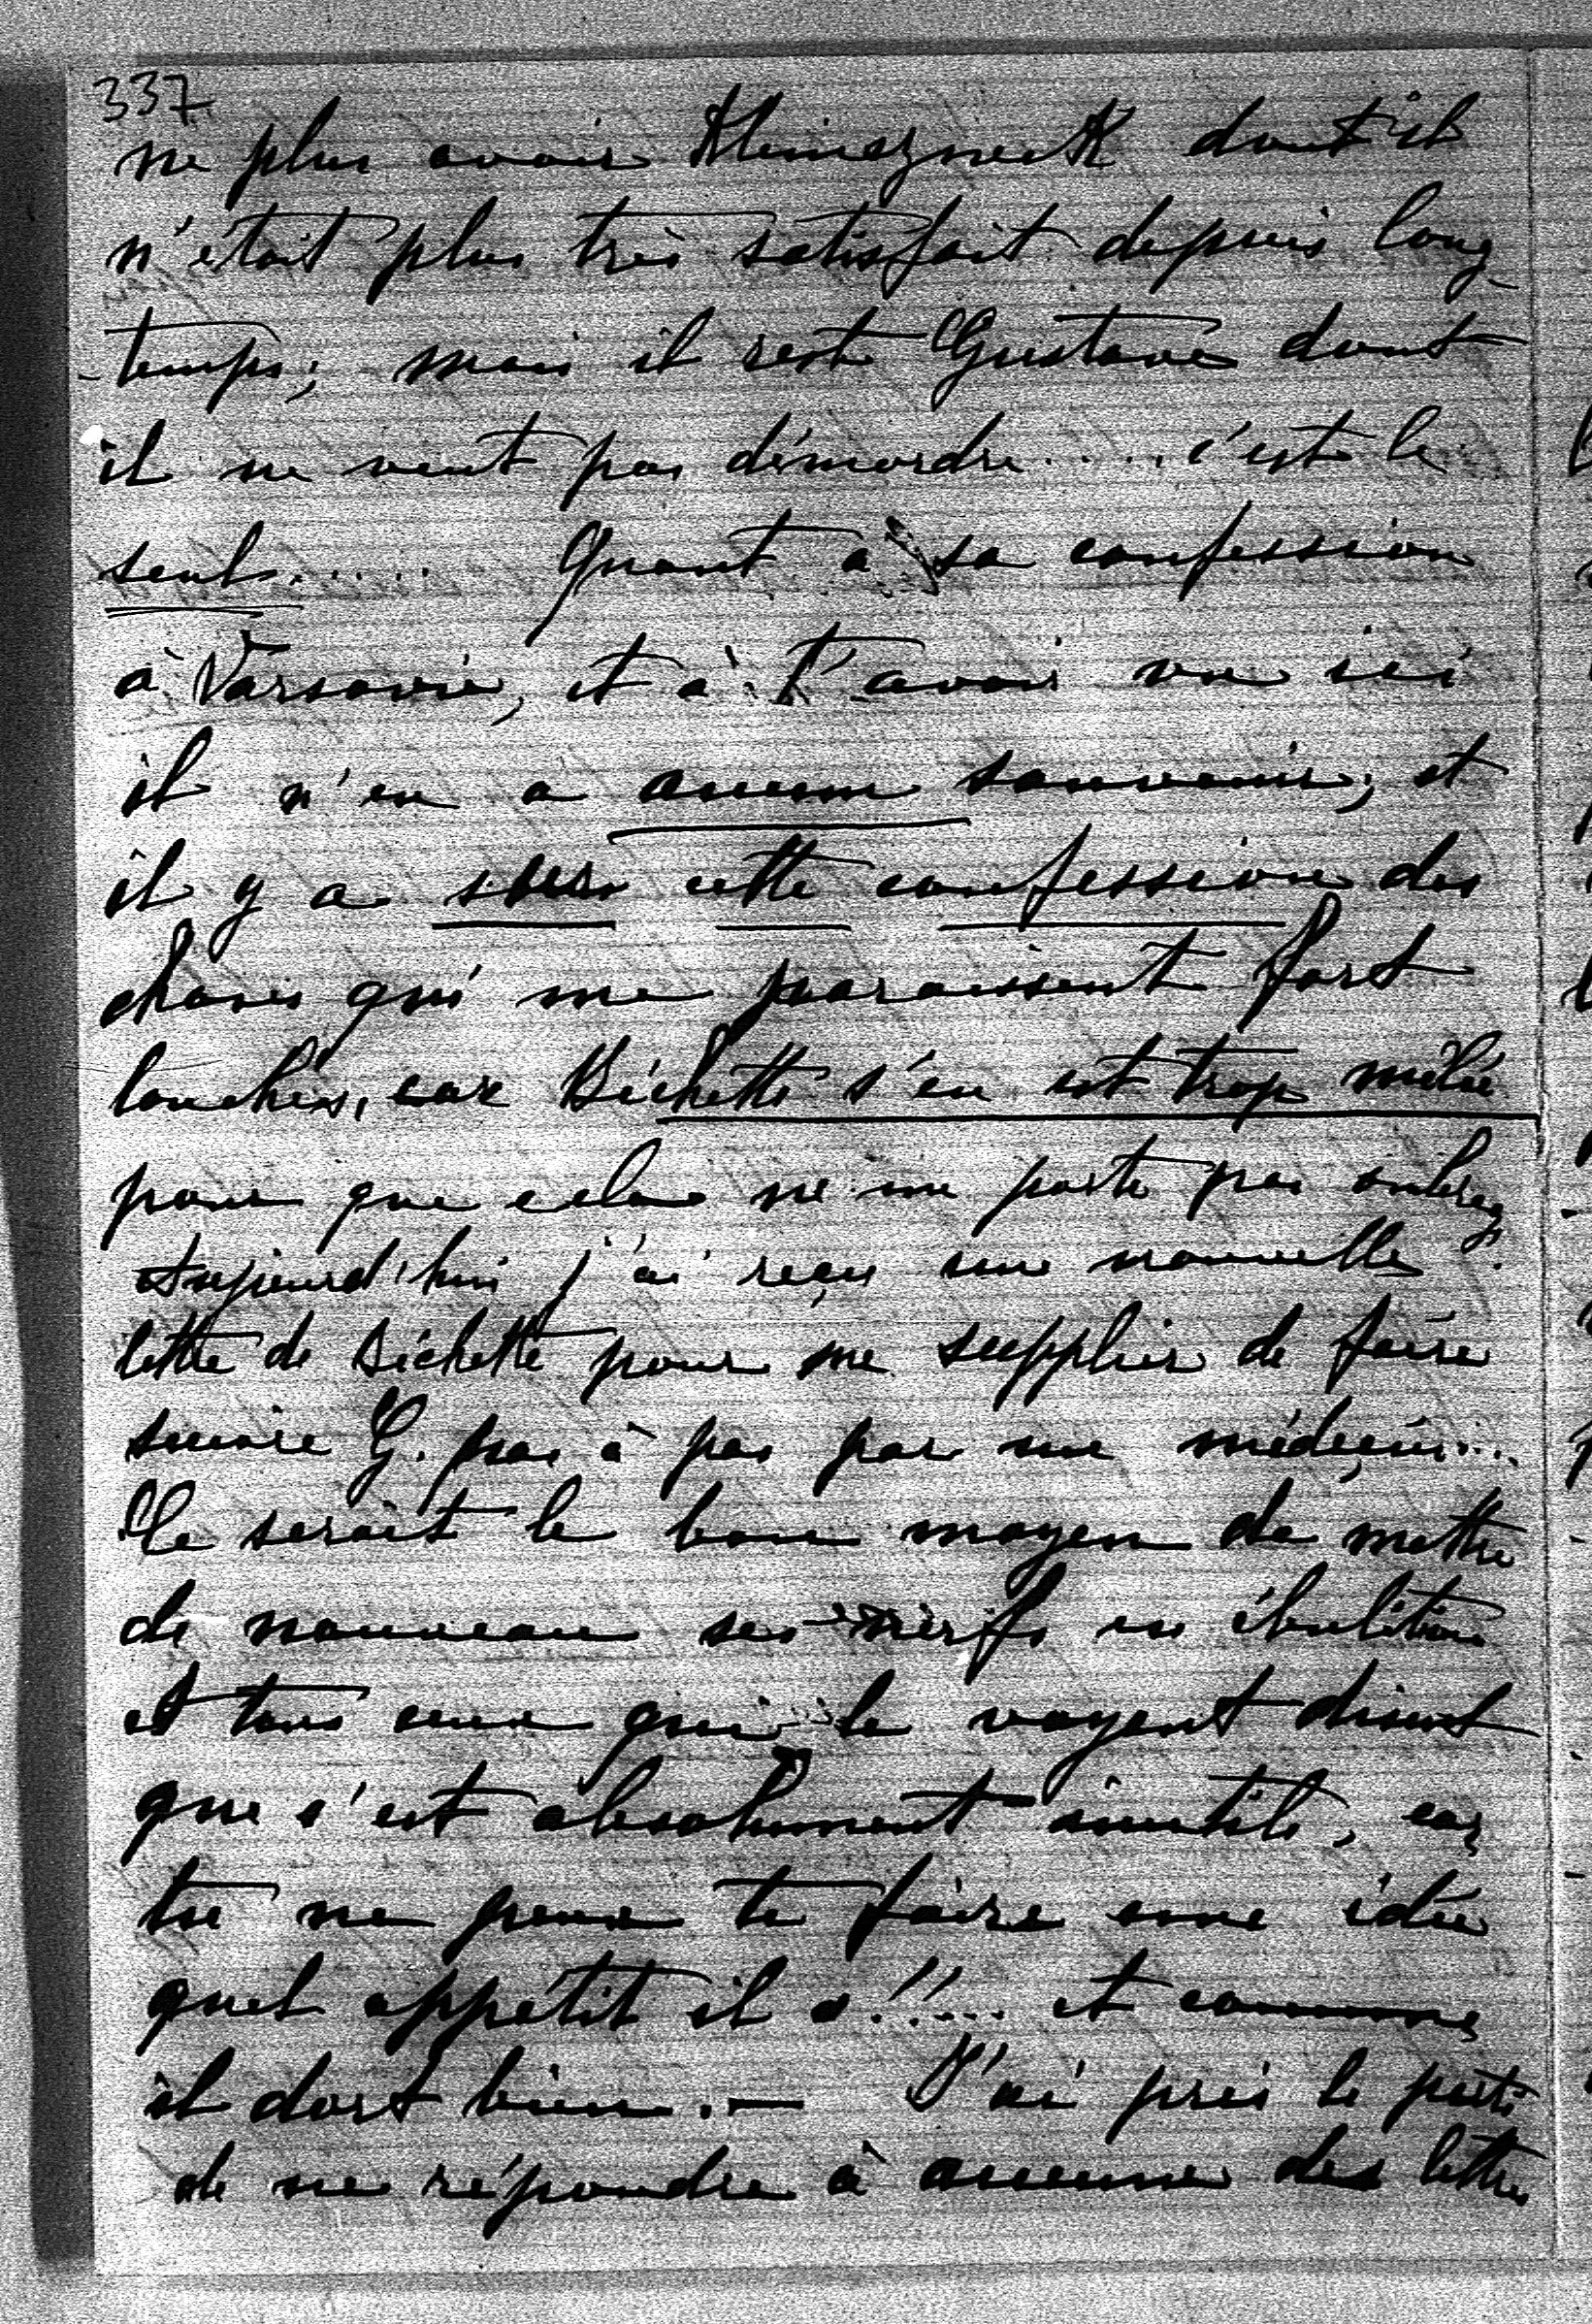 337
ne plus avoir dont il
n'était plus très satisfait depuis long
-temps; mais il reste Gustave dont
il ne veut pas démordre..... c'est le
seul...... Quant à sa confession
à Varsovie, et à t'avoir vu ici
il n'en a aucun souvenir; et
il y a sous cette confession des
choses qui me paraissent fort
louches, car Bichette s'en est trop mêlée
pour que cela ne me porte pas ombrage.
Aujourd'hui j'ai reçu une nouvelle
lettre de Bichette pour me supplier de faire
suivre G. pas à pas par un médecin...
Ce serait le bon moyen de mettre
de nouveau ses nerfs en ébulition
et tous ceux qui le voyent disent
que c'est absolument inutile, car
tu ne peux te faire une idée
quel appétit il a!!... et comme
il dort bien. — J'ai pris le parti
de ne répondre à aucune des lettres